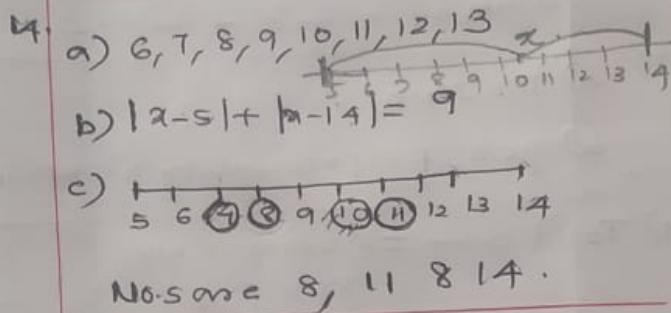 14.
a) 6, 7, 8, 9, 10, 11, 12, 13
x
5 6 7 8 9 10 11 12 13 14
b) |x-5| + |x-14| = 9
c)
5 6 7 8 9 10 11 12 13 14
No.s are 8, 11 & 14.